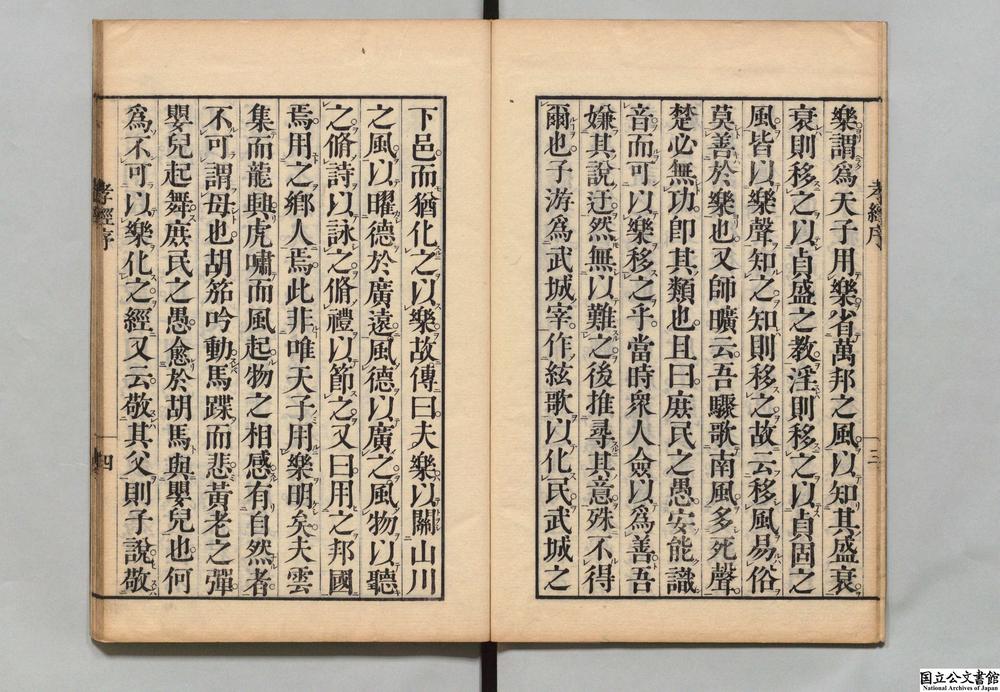 樂謂爲天子用樂省萬邦之風以知其盛衰
衰則移之以貞盛之教淫則移之以貞固之
風皆以樂聲知之知則移之故云移風易俗
莫善於樂也又師曠云吾驟歌南風多死聲
楚必無功即其類也且曰庶民之愚安能識
音而可以樂移之乎當時衆人僉以爲善吾
嫌其說迂然無以難之後推尋其意殊不得
爾也子游爲武城宰作絃歌以化民武城之
孝經序
三
下邑而猶化之以樂故傳曰夫樂以關山川
之風以曜德於廣遠風德以廣之風物以聽
之脩詩以詠之脩禮以節之又曰用之邦國
焉用之鄉人焉此非唯天子用樂明矣夫雲
集而龍興虎嘯而風起物之相感有自然者
不可謂母也胡笳吟動馬蹀而悲黃老之彈
嬰兒起舞庶民之愚愈於胡馬與嬰兒也何
爲不可以樂化之經又云敬其父則子說敬
孝經序
四
国立公文書館
National Archives of Japan